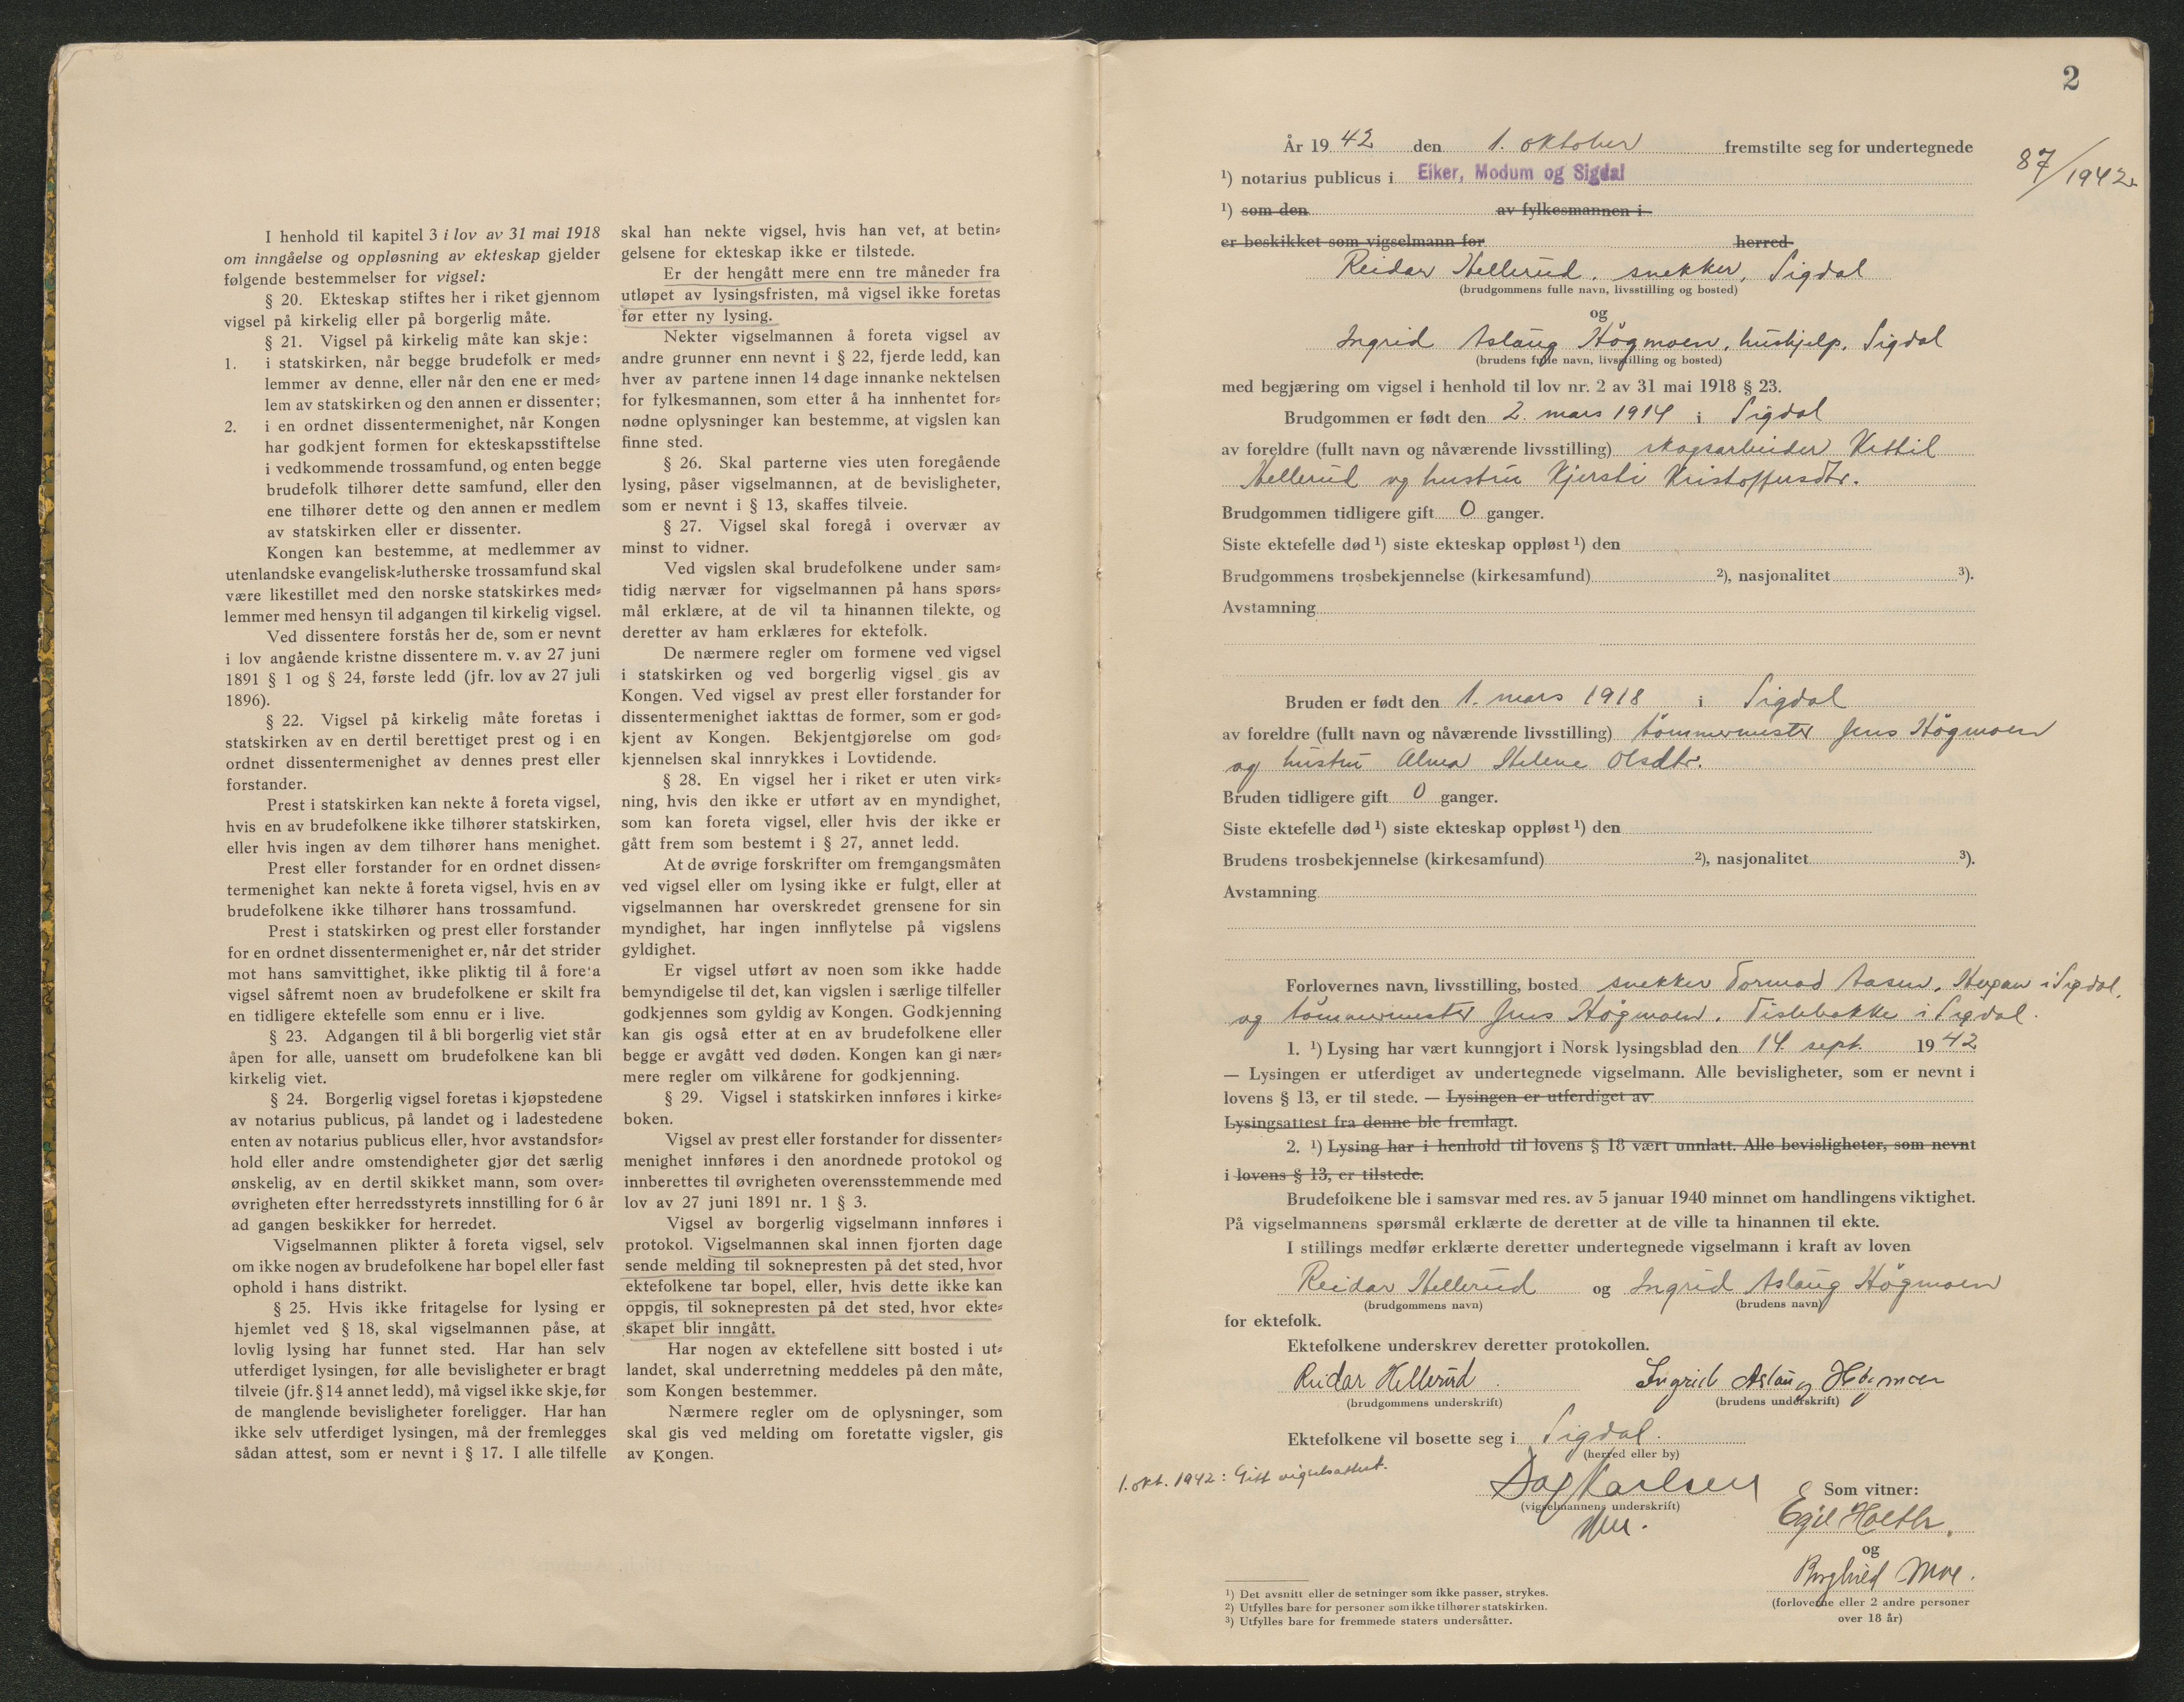 I henhold til kapitel 3 i lov av 31 mai 1918
om inngåelse og oppløsning av ekteskap gjelder
følgende bestemmelser for vigsel:
§ 20. Ekteskap stiftes her i riket gjennom
vigsel på kirkelig eller på borgerlig måte.
§ 21. Vigsel på kirkelig måte kan skje:
1. i statskirken, når begge brudefolk er med=
lemmer av denne, eller når den ene er med=
lem av statskirken og den annen er dissenter;
2. i en ordnet dissentermenighet, når Kongen
har godkjent formen for ekteskapsstiftelse
i vedkommende trossamfund, og enten begge
brudefolk tilhører dette samfund, eller den
ene tilhører dette og den annen er medlem
av statskirken eller er dissenter.
Kongen kan bestemme, at medlemmer av
utenlandske evangelisk=lutherske trossamfund skal
være likestillet med den norske statskirkes med=
lemmer med hensyn til adgangen til kirkelig vigsel.
Ved dissentere forstås her de, som er nevnt
i lov angående kristne dissentere m. v. av 27 juni
1891 § 1 og § 24, første ledd (jfr. lov av 27 juli
1896).
§ 22. Vigsel på kirkelig måte foretas i
statskirken av en dertil berettiget prest og i en
ordnet dissentermenighet av dennes prest eller
forstander.
Prest i statskirken kan nekte å foreta vigsel,
hvis en av brudefolkene ikke tilhører statskirken,
eller hvis ingen av dem tilhører hans menighet.
Prest eller forstander for en ordnet dissen=
termenighet kan nekte å foreta vigsel, hvis en av
brudefolkene ikke tilhører hans trossamfund.
Prest i statskirken og prest eller forstander
for en ordnet dissentermenighet er, når det strider
mot hans samvittighet, ikke pliktig til å foreta
vigsel såfremt noen av brudefolkene er skilt fra
en tidligere ektefelle som ennu er i live.
§ 23. Adgangen til å bli borgerlig viet står
åpen for alle, uansett om brudefolkene kan bli
kirkelig viet.
§ 24. Borgerlig vigsel foretas i kjøpstedene
av notarius publicus, på landet og i ladestedene
enten av notarius publicus eller, hvor avstandsfor=
hold eller andre omstendigheter gjør det særlig
ønskelig, av en dertil skikket mann, som over=
øvrigheten efter herredsstyrets innstilling for 6 år
ad gangen beskikker for herredet.
Vigselmannen plikter å foreta vigsel, selv
om ikke nogen av brudefolkene har bopel eller fast
ophold i hans distrikt.
§ 25. Hvis ikke fritagelse for lysing er
hjemlet ved § 18, skal vigselmannen påse, at
lovlig lysing har funnet sted. Har han selv
utferdiget lysingen, før alle bevisligheter er bragt
tilveie (jfr. § 14 annet ledd), må vigsel ikke skje, før
de manglende bevisligheter foreligger. Har han
ikke selv utferdiget lysingen, må der fremlegges
sådan attest, som er nevnt i § 17. I alle tilfelle
skal han nekte vigsel, hvis han vet, at betin=
gelsene for ekteskap ikke er tilstede.
Er der hengått mere enn tre måneder fra
utløpet av lysingsfristen, må vigsel ikke foretas
før etter ny lysing.
Nekter vigselmannen å foreta vigsel av
andre grunner enn nevnt i § 22, fjerde ledd, kan
hver av partene innen 14 dage innanke nektelsen
for fylkesmannen, som etter å ha innhentet for=
nødne oplysninger kan bestemme, at vigslen kan
finne sted.
§ 26. Skal parterne vies uten foregående
lysing, påser vigselmannen, at de bevisligheter,
som er nevnt i § 13, skaffes tilveie.
§ 27. Vigsel skal foregå i overvær av
minst to vidner.
Ved vigslen skal brudefolkene under sam=
tidig nærvær for vigselmannen på hans spørs=
mål erklære, at de vil ta hinannen tilekte, og
deretter av ham erklæres for ektefolk.
De nærmere regler om formene ved vigsel
i statskirken og ved borgerlig vigsel gis av
Kongen. Ved vigsel av prest eller forstander for
dissentermenighet iakttas de former, som er god=
kjent av Kongen. Bekjentgjørelse om god=
kjennelsen skal innrykkes i Lovtidende.
§ 28. En vigsel her i riket er uten virk=
ning, hvis den ikke er utført av en myndighet,
som kan foreta vigsel, eller hvis der ikke er
gått frem som bestemt i § 27, annet ledd.
At de øvrige forskrifter om fremgangsmåten
ved vigsel eller om lysing ikke er fulgt, eller at
vigselmannen har overskredet grensene for sin
myndighet, har ingen innflytelse på vigslens
gyldighet.
Er vigsel utført av noen som ikke hadde
bemyndigelse til det, kan vigslen i særlige tilfeller
godkjennes som gyldig av Kongen. Godkjenning
kan gis også etter at en av brudefolkene eller
begge er avgått ved døden. Kongen kan gi nær=
mere regler om vilkårene for godkjenning.
§ 29. Vigsel i statskirken innføres i kirke=
boken.
Vigsel av prest eller forstander for dissenter=
menighet innføres i den anordnede protokol og
innberettes til øvrigheten overensstemmende med
lov av 27 juni 1891 nr. 1 § 3.
Vigsel av borgerlig vigselmann innføres i
protokol. Vigselmannen skal innen fjorten dage
sende melding til soknepresten på det sted, hvor
ektefolkene tar bopel, eller, hvis dette ikke kan
oppgis, til soknepresten på det sted, hvor ekte=
skapet blir inngått.
Har nogen av ektefellene sitt bosted i ut=
landet, skal underretning meddeles på den måte,
som Kongen bestemmer.
Nærmere regler om de oplysninger, som
skal gis ved melding om foretatte vigsler, gis
av Kongen.
2
År 1942 den 1. oktober fremstilte seg for undertegnede
87/1942.
¹) notarius publicus i Eiker, Modum og Sigdal
¹) som den av fylkesmannen i
er beskikket som vigselmann for herred
Reidar Hellerud, snekker, Sigdal
(brudgommens fulle navn, livsstilling og bosted)
og
Ingrid Aslaug Högmoen, hushjelp, Sigdal
(brudens fulle navn, livsstilling og bosted)
med begjæring om vigsel i henhold til lov nr. 2 av 31 mai 1918 § 23.
Brudgommen er født den 2. mars 1914 i Sigdal
av foreldre (fullt navn og nåværende livsstilling) skogsarbeider Kittil
Hellerud og hustru Kjersti Kristoffersdtr.
Brudgommen tidligere gift 0 ganger.
Siste ektefelle død ¹) siste ekteskap oppløst ¹) den
Brudgommens trosbekjennelse (kirkesamfund) ²), nasjonalitet ³).
Avstamning
Bruden er født den 1. mars 1918 i Sigdal
av foreldre (fullt navn og nåværende livsstilling) tömmermester Jens Högmoen
og hustru Alma Helene Olsdtr.
Bruden tidligere gift 0 ganger.
Siste ektefelle død ¹) siste ekteskap oppløst ¹) den
Brudens trosbekjennelse (kirkesamfund) ²), nasjonalitet ³).
Avstamning
Forlovernes navn, livsstilling, bosted snekker Tormod Aasen, i Sigdal,
og tömmermester Jens Högmoen, i Sigdal.
1. ¹) Lysing har vært kunngjort i Norsk lysingsblad den 14. sept. 1942
— Lysingen er utferdiget av undertegnede vigselmann. Alle bevisligheter, som er nevnt i
lovens § 13, er til stede. — Lysingen er utferdiget av
Lysingsattest fra denne ble fremlagt.
2. ¹) Lysing har i henhold til lovens § 18 vært unnlatt. Alle bevisligheter, som nevnt
i lovens § 13, er tilstede.
Brudefolkene ble i samsvar med res. av 5 januar 1940 minnet om handlingens viktighet.
På vigselmannens spørsmål erklærte de deretter at de ville ta hinannen til ekte.
I stillings medfør erklærte deretter undertegnede vigselmann i kraft av loven
Reidar Hellerud og Ingrid Aslaug Högmoen
(brudgommens navn) (brudens navn)
for ektefolk.
Ektefolkene underskrev deretter protokollen.
Reidar Hellerud Ingrid Aslaug Högmoen
(brudgommens underskrift) (brudens underskrift)
Ektefolkene vil bosette seg i Sigdal.
(herred eller by)
1. okt. 1942: Gitt vigselsattest.
Dag Karlsen
(vigselmannens underskrift)
Som vitner:
Egil Holth.
og
Borghild Moe.
(forloverne eller 2 andre personer
over 18 år)
¹) Det avsnitt eller de setninger som ikke passer, strykes.
²) Utfylles bare for personer som ikke tilhører statskirken.
³) Utfylles bare for fremmede staters undersåtter.